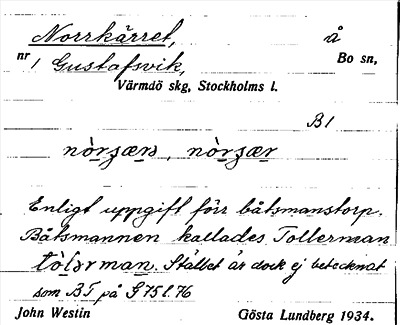 Norrkärret, å
nr 1 Gustafsvik, Bo sn,
Värmdö skg, Stockholms l.
B1
Enligt uppgift förr båtsmanstorp.
Båtsmannen kallades Tollerman
Stället är dock ej betecknat
som BT på G 75 l. 76
John Westin Gösta Lundberg 1934.